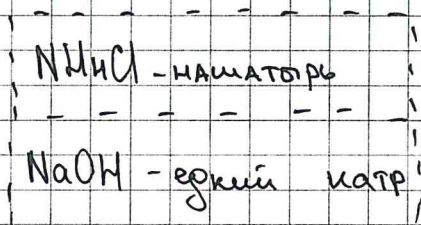 NH4Cl - нашатырь
NaOH - едкий натр